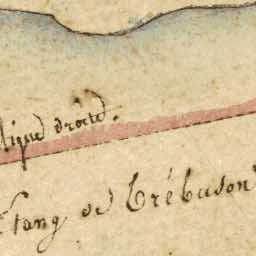 ligne droite.
Etang de Trébuson